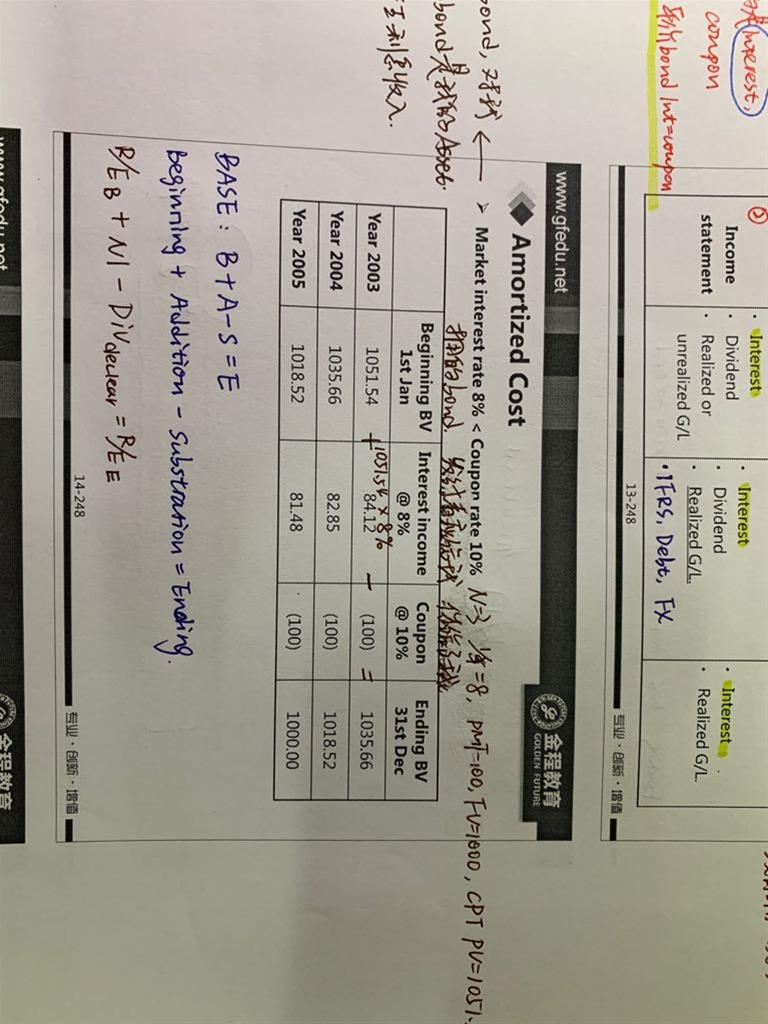 interest,
coupon
bond Int=coupon
②
Income statement
• Interest
• Dividend
• Realized or unrealized G/L
• Interest
• Dividend
• Realized G/L.
• IFRS, Debt, FX
• Interest
• Realized G/L.
13-248
专业·创新·增值
www.gfedu.net
金程教育
GOLDEN FUTURE
Amortized Cost
bond,
bond是我的Asset.
利息收入.
➢ Market interest rate 8% < Coupon rate 10%
N=3, I/Y=8, PMT=100, FV=1000, CPT PV=1051.
Beginning BV 1st Jan
Interest income @ 8%
Coupon @ 10%
Ending BV 31st Dec
1051.54 × 8%
Year 2003 1051.54 + 84.12 − (100) = 1035.66
Year 2004 1035.66 82.85 (100) 1018.52
Year 2005 1018.52 81.48 (100) 1000.00
BASE: B+A-S=E
Beginning + Addition - Substration = Ending.
R/E B + NI - Div declear = R/E E
14-248
专业·创新·增值
www.gfedu.net
金程教育